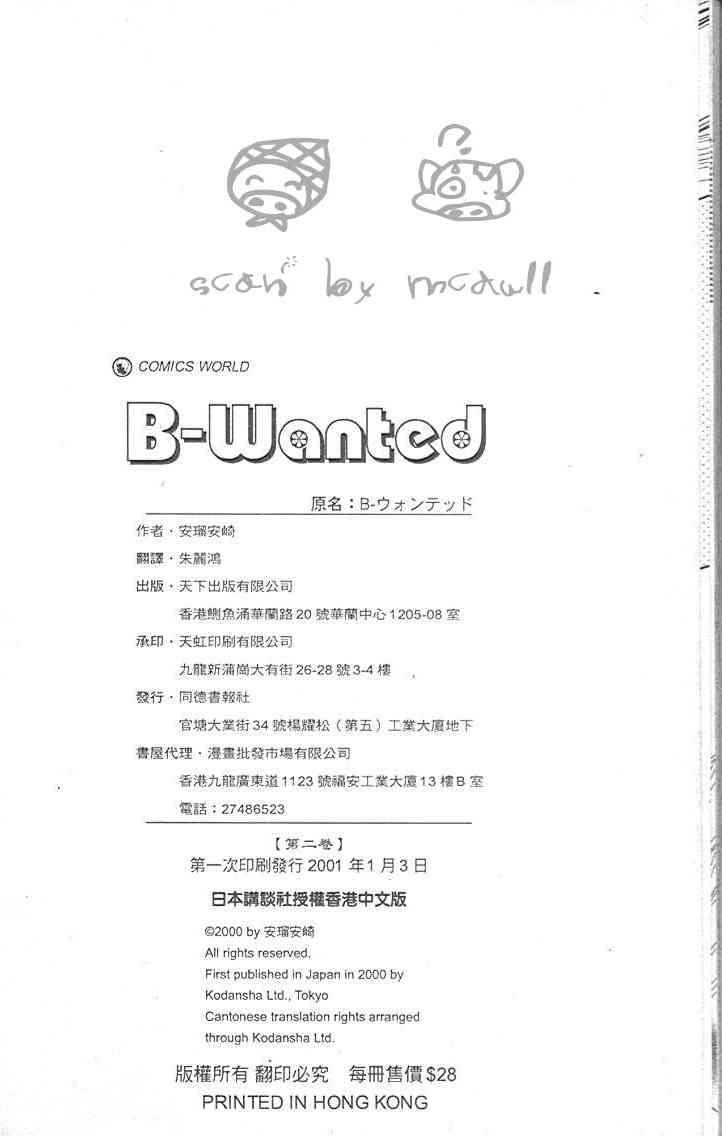 ?
scan by mcdull
COMICS WORLD
B-Wanted
原名：B-ウォンテッド
作者・安瑠安崎
翻譯・朱麗鴻
出版・天下出版有限公司
香港鰂魚涌華蘭路20號華蘭中心1205-08室
承印・天虹印刷有限公司
九龍新蒲崗大有街26-28號3-4樓
發行・同德書報社
官塘大業街34號楊耀松（第五）工業大廈地下
書屋代理・漫畫批發市場有限公司
香港九龍廣東道1123號福安工業大廈13樓B室
電話：27486523
【第二卷】
第一次印刷發行2001年1月3日
日本講談社授權香港中文版
©2000 by 安瑠安崎
All rights reserved.
First published in Japan in 2000 by
Kodansha Ltd., Tokyo
Cantonese translation rights arranged
through Kodansha Ltd.
版權所有 翻印必究 每冊售價$28
PRINTED IN HONG KONG